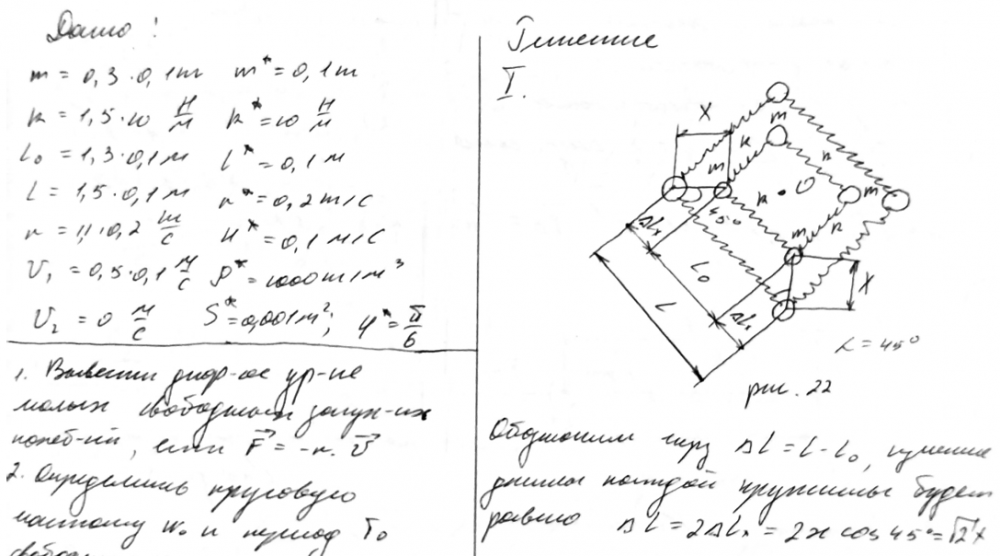 Дано:
m = 0,3·0,1 m  m* = 0,1 m
k = 1,5·10 Н/м  k* = 10 Н/м
L₀ = 1,3·0,1 м  l* = 0,1 м
L = 1,5·0,1 м  r* = 0,2 m/c
r = 1,·0,2 m/c  U* = 0,1 м/с
U₁ = 0,5·0,1 м/с  ρ* = 1000 m/м³
U₂ = 0 м/с  S* = 0,001 м²; φ* = π/6
1. Вывести диф-ое ур-ие
малых свободных затух-их
колеб-ий, если F⃗ = -r·v⃗
2. Определить круговую
частоту w₀ и период T₀
Решение
I.
X
m
k
m
k
k
O
m
45°
k
m
ΔLₓ
L₀
L
ΔLₓ
X
α = 45°
рис. 22
Обозначим через ΔL = L - L₀, изменение
длины каждой пружины будет
равно ΔL = 2ΔLₓ = 2x cos 45° = √2 x